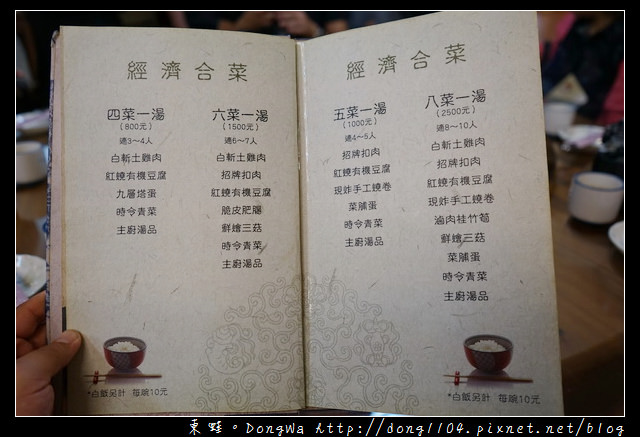 經濟合菜
四菜一湯
(800元)
適3~4人
白斬土雞肉
紅饒有機豆腐
九層塔蛋
時令青菜
主廚湯品
六菜一湯
(1500元)
適6~7人
白斬土雞肉
招牌扣肉
紅饒有機豆腐
脆皮肥腸
鮮繪三菇
時令青菜
主廚湯品
*白飯另計 每碗10元
經濟合菜
五菜一湯
(1000元)
適4~5人
招牌扣肉
紅饒有機豆腐
現炸手工饒卷
菜脯蛋
時令青菜
主廚湯品
八菜一湯
(2500元)
適8~10人
白斬土雞肉
招牌扣肉
紅饒有機豆腐
現炸手工饒卷
滷肉桂竹筍
鮮繪三菇
菜脯蛋
時令青菜
主廚湯品
*白飯另計 每碗10元
東蛙。DongWa http://dong1104.pixnet.net/blog